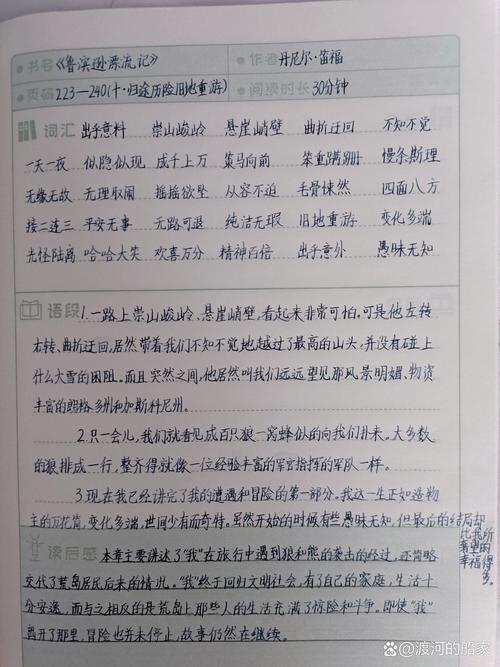 书名《鲁滨逊漂流记》 作者 丹尼尔·笛福
页码 223—240(十·归途历险旧地重游) 阅读时长 30分钟
词汇 出乎意料 崇山峻岭 悬崖峭壁 曲折迂回 不知不觉
一天一夜 似隐似现 成千上万 策马向前 笨重蹒跚 慢条斯理
无缘无故 无理取闹 摇摇欲坠 从容不迫 毛骨悚然 四面八方
接二连三 平安无事 无路可退 纯洁无瑕 旧地重游 变化多端
光怪陆离 哈哈大笑 欢喜万分 精神百倍 出乎意外 愚昧无知
语段 1.一路上崇山峻岭、悬崖峭壁,看起来非常可怕。可是他左转
右转、曲折迂回,居然带着我们不知不觉地越过了最高的山头,并没有碰上
什么大雪的困阻。而且突然之间,他居然叫我们远远望见那风景明媚、物资
丰富的朗格多州和加斯科尼州。
2.只一会儿,我们就看见成百只狼一窝蜂似的向我们扑来。大多数
的狼排成一行,整齐得就像一位经验丰富的军官指挥的军队一样。
3.现在我已经讲完了我的遭遇和冒险的第一部分。我这一生正如造物
主的万花筒,变化多端,世间少有而奇特。虽然开始的时候有些愚昧无知,但最后的结局却
比我所
奢望的
幸福得多。
读后感 本章主要讲述了“我”在旅行中遇到狼和熊的袭击的经过,还简略
交代了荒岛居民后来的情况。“我”终于回归文明社会,有了自己的家庭,生活十
分安逸,而与之相反的是荒岛上那些人的生活充满了惊险和斗争。即使“我”
离开了那里,冒险也并未停止,故事仍然在继续。
@渡河的船家